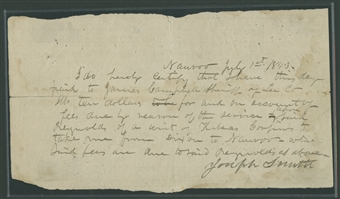 Nauvoo July 1st 1843.
I do hereby certify that I have this day
paid to James Campbell
ten dollars for and on account of
fees due by reason of the service of said
Reynolds of a writ of Habeas Corpus to
take me from Dixon to Nauvoo
said fees are due to said Reynolds as above
Joseph Smith